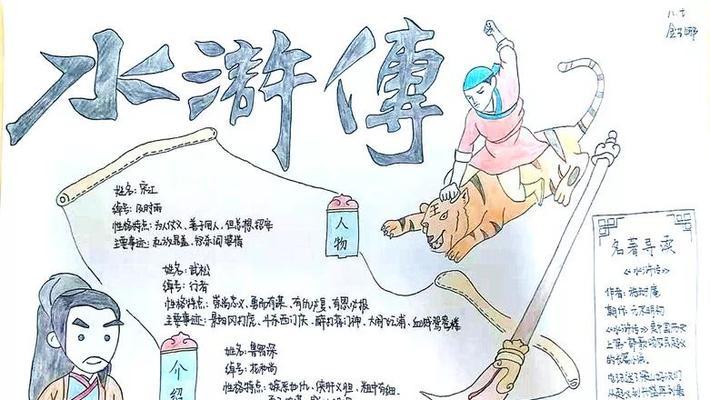 水滸傳
八.七
姓名：宋江
绰号：及时雨
性格特点：为人仗义、善于用人，但总想招安
主要事迹：私放晁盖、怒杀阎婆惜
人物
姓名：武松
绰号：行者
性格特点：崇尚忠义、勇而有谋、有仇必复、有恩必报
主要事迹：景阳冈打虎、斗杀西门庆、醉打蒋门神、大闹飞云浦、血溅鸳鸯楼
介绍
姓名：鲁智深
绰号：花和尚
性格特点：嫉恶如仇、侠肝义胆、粗中有细、
名著导读
《水浒传》
作者：施耐庵
朝代：元末明初
《水浒传》是中国历史
上第一部歌颂农民起义
的长篇小说。